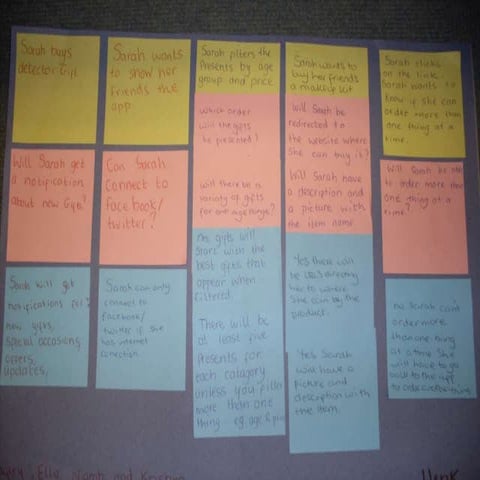 Sarah buys
detector Gift
Sarah wants
to show her
friends the
app
Sarah filters the
Presents by age
group and price
Sarah wants to
buy her friends
a makeup kit
Sarah clicks
on the link.
Sarah wants to
know if she can
order more than
one thing at a
time.
Will Sarah get
a notification
about new Gifts?
Can Sarah
connect to
facebook/
twitter?
Which order
will the gifts
be presented?
will there be a
variety of gifts
for age ranges?
Will Sarah be
redirected to
the website where
She can buy it?
Will Sarah have
a description and
a picture with
the item name
Will Sarah be able
to order more than
one thing at a
time?
Sarah will get
notifications for
new gifts,
special occasions
offers,
updates,
Sarah can only
connect to
facebook/
twitter if she
has internet
connection.
The gifts will
start with the
best gifts that
appear when
filtered.
There will be
at least five
Presents for
each catagory
unless you filter
more than one
thing eg. age &
Yes there will
be links directing
her to where
She can buy the
product.
Yes Sarah
will have a
picture and
description with
the item.
no Sarah can't
order more
than one thing
at a time She
will have to go
back to the app
to order
Elle, Niamh and